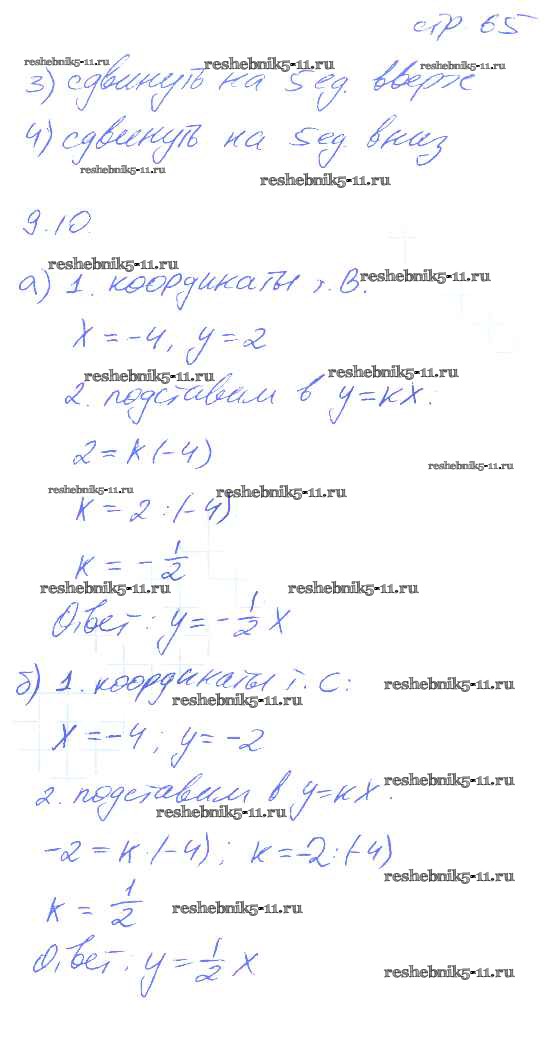 стр. 65
reshebnik5-11.ru reshebnik5-11.ru reshebnik5-11.ru
3) сдвинуть на 5 ед. вверх
4) сдвинуть на 5 ед. вниз
reshebnik5-11.ru reshebnik5-11.ru
9.10.
reshebnik5-11.ru reshebnik5-11.ru
а) 1. координаты т. В.
x = -4, y = 2
reshebnik5-11.ru reshebnik5-11.ru
2. подставим в y = kx:
2 = k (-4)
reshebnik5-11.ru
reshebnik5-11.ru reshebnik5-11.ru
k = 2 : (-4)
k = - 1/2
reshebnik5-11.ru reshebnik5-11.ru
Ответ: y = - 1/2 x
б) 1. координаты т. С:
reshebnik5-11.ru
reshebnik5-11.ru
x = -4; y = -2
2. подставим в y = kx.
reshebnik5-11.ru
reshebnik5-11.ru
-2 = k·(-4); k = -2 : (-4)
reshebnik5-11.ru
k = 1/2
reshebnik5-11.ru reshebnik5-11.ru
Ответ: y = 1/2 x
reshebnik5-11.ru